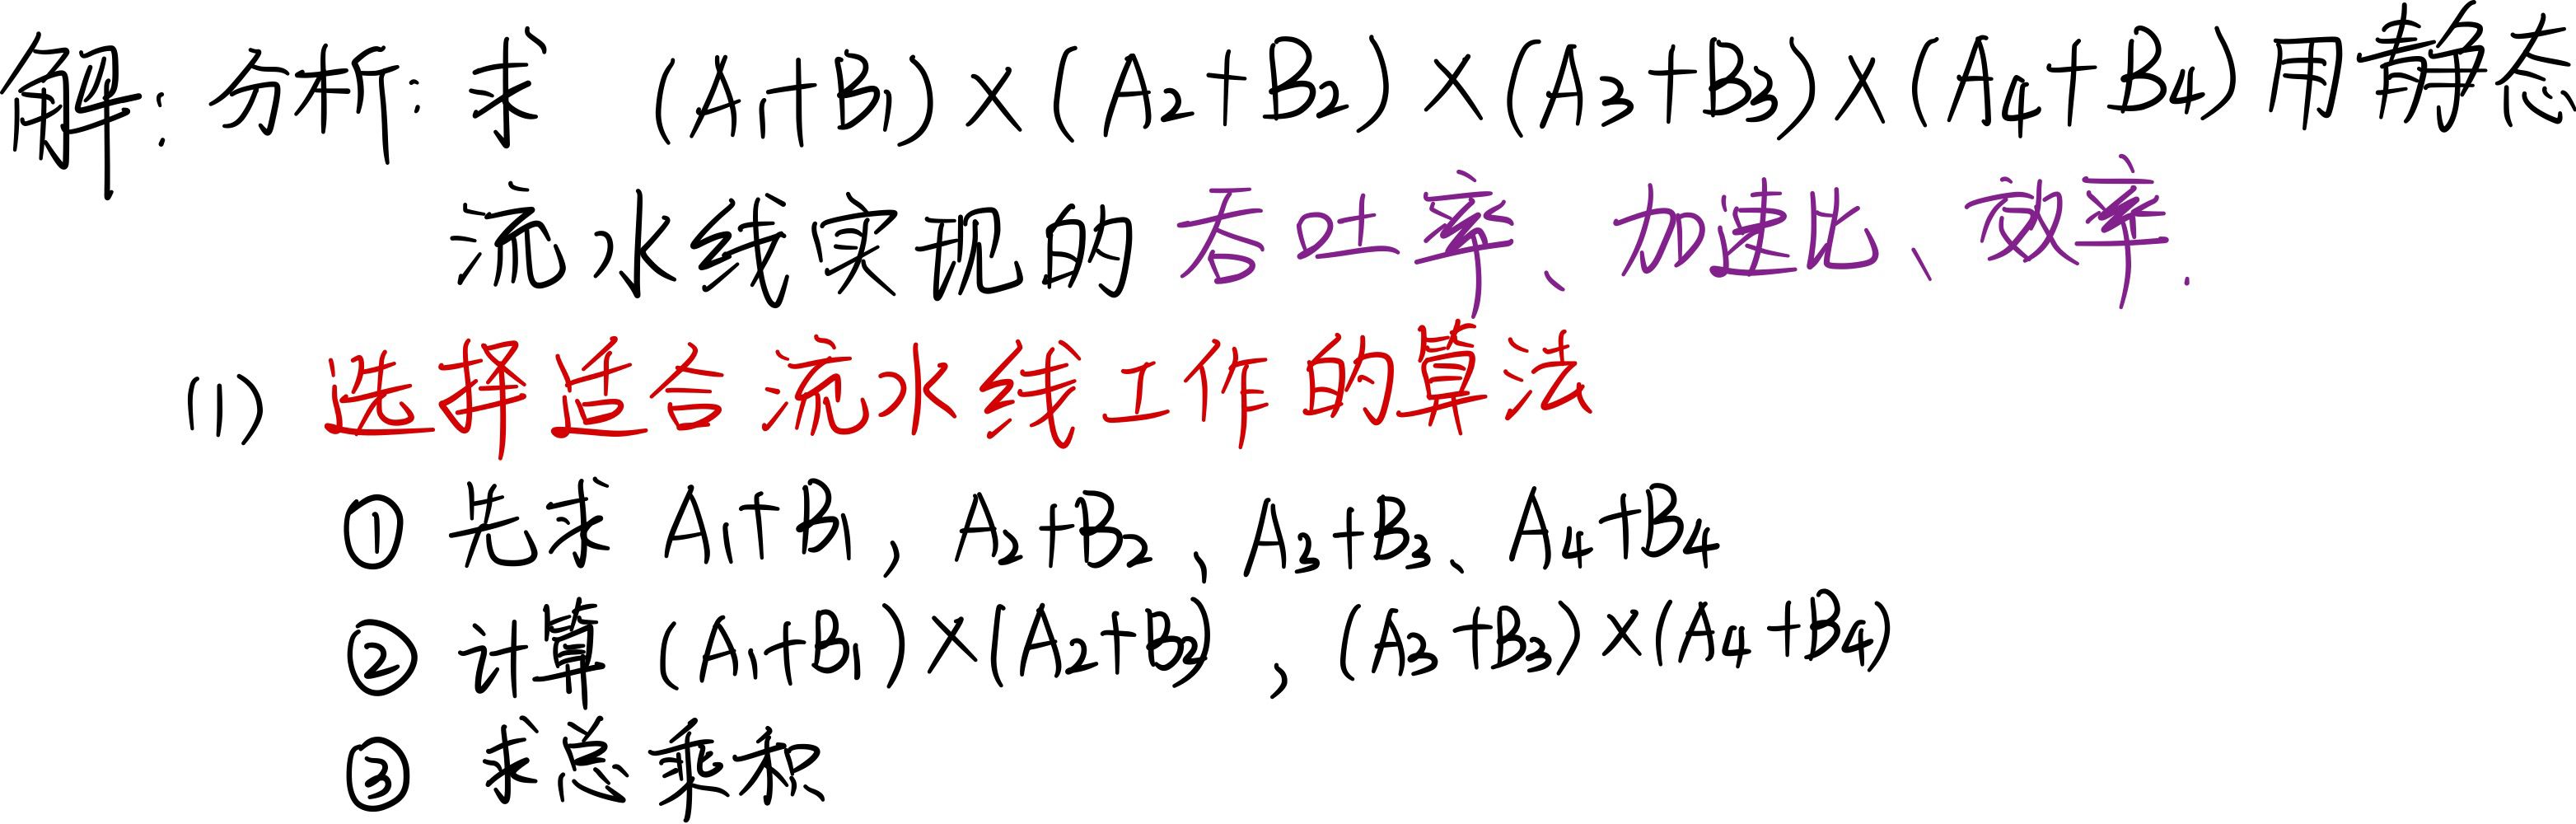 解：分析：求 (A₁+B₁)×(A₂+B₂)×(A₃+B₃)×(A₄+B₄) 用静态
流水线实现的 吞吐率、加速比、效率.
(1) 选择适合流水线工作的算法
① 先求 A₁+B₁, A₂+B₂、A₃+B₃、A₄+B₄
② 计算 (A₁+B₁)×(A₂+B₂), (A₃+B₃)×(A₄+B₄)
③ 求总乘积